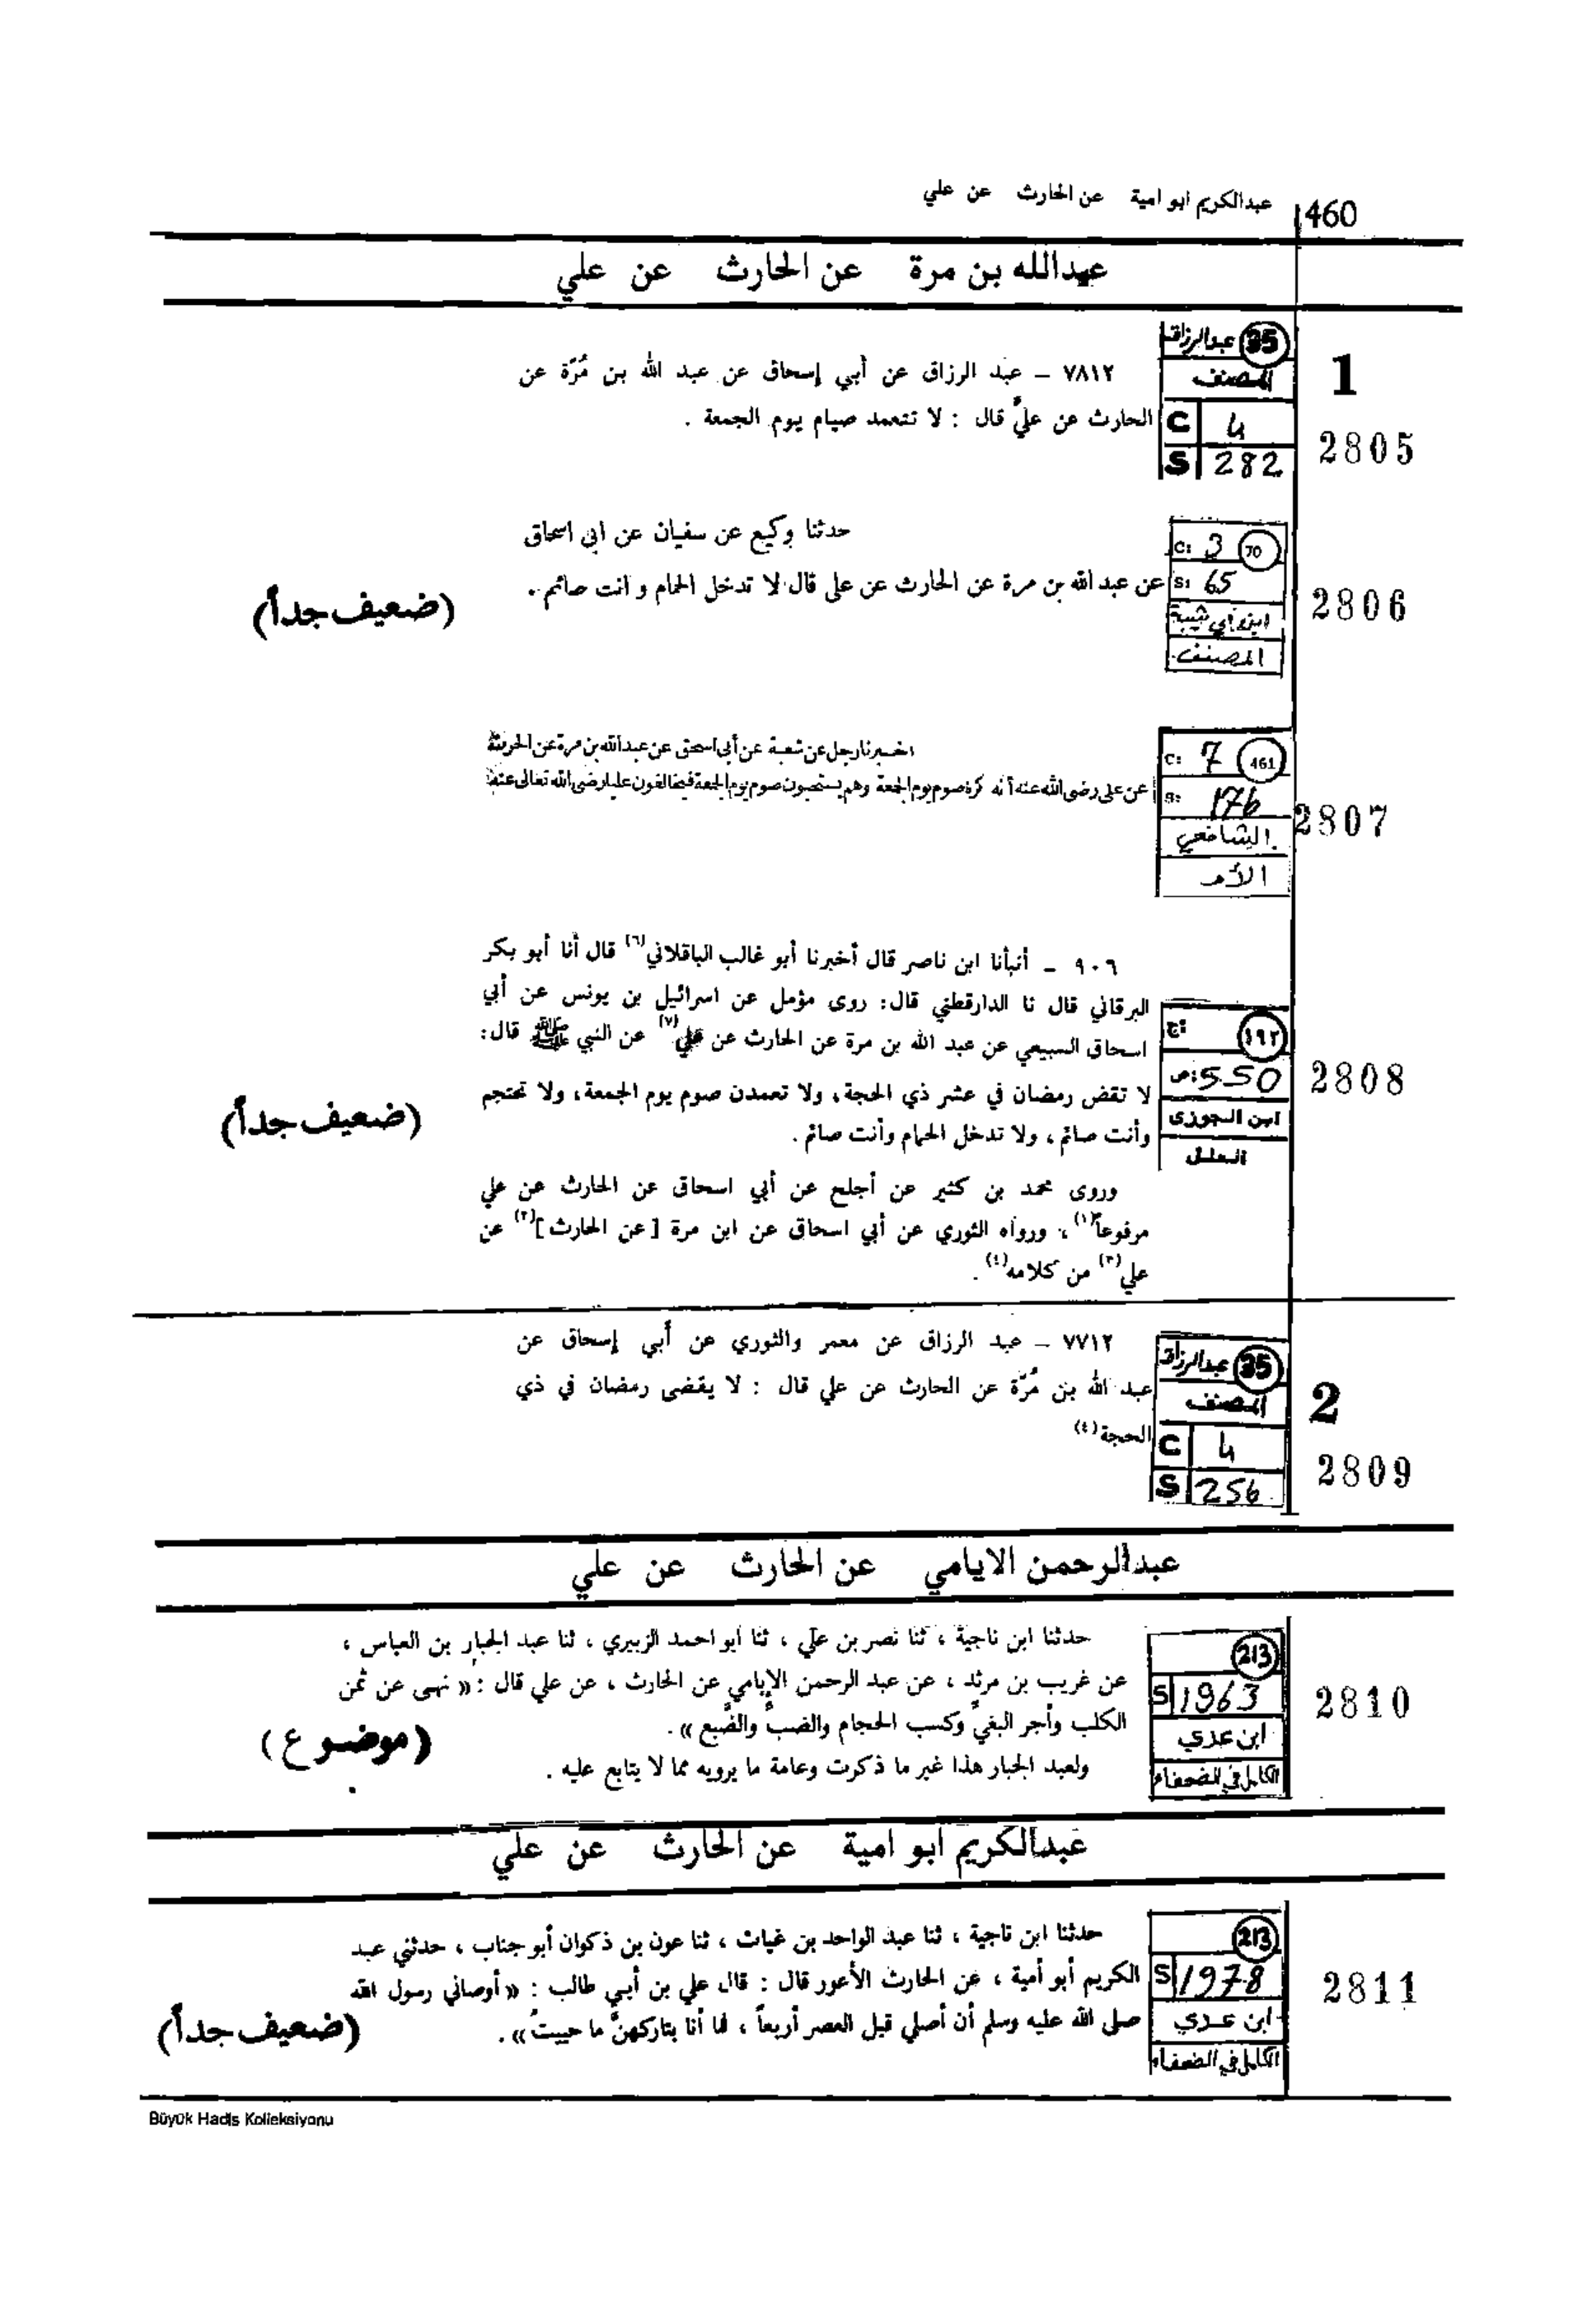 460
عبدالكريم ابو امية عن الحارث عن علي
عبدالله بن مرة عن الحارث عن علي
1
2805
35 عبدالرزاق
المصنف
C 4
S 282
٧٨١٢ – عبد الرزاق عن أبي إسحاق عن عبد الله بن مُرّة عن
الحارث عن عليّ قال : لا تتعمد صيام يوم الجمعة .
2806
C: 3 70
S: 65
ابن ابي شيبة
المصنف
حدثنا وكيع عن سفيان عن ابى اسحاق
عن عبد الله بن مرة عن الحارث عن على قال لا تدخل الحمام و انت صائم .
(ضعيف جداً)
2807
C: 7 461
S: 176
الشافعي
الأم
اخبرنا رجل عن شعبة عن أبى اسحق عن عبد الله بن مرة عن الحرث
عن على رضى الله عنه أنه كره صوم يوم الجمعة وهم يستحبون صوم يوم الجمعة فيخالفون عليا رضى الله تعالى عنه
2808
ج: ١٩٢
ص: 550
ابن الجوزى
العلل
٩٠٦ – أنبأنا ابن ناصر قال أخبرنا أبو غالب الباقلاني(٦) قال أنا أبو بكر
البرقاني قال نا الدارقطني قال: روى مؤمل عن اسرائيل بن يونس عن أبي
اسحاق السبيعي عن عبد الله بن مرة عن الحارث عن علي(٧) عن النبي ﷺ قال:
لا تقض رمضان في عشر ذي الحجة، ولا تعمدن صوم يوم الجمعة، ولا تحتجم
وأنت صائم، ولا تدخل الحمام وأنت صائم .
(ضعيف جداً)
وروى محمد بن كثير عن أجلح عن أبي اسحاق عن الحارث عن علي
مرفوعاً(١)، ورواه الثوري عن أبي اسحاق عن ابن مرة [عن الحارث](٢) عن
علي(٣) من كلامه(٤) .
2
2809
35 عبدالرزاق
المصنف
C 4
S 256
٧٧١٢ – عبد الرزاق عن معمر والثوري عن أبي إسحاق عن
عبد الله بن مُرّة عن الحارث عن علي قال : لا يقضى رمضان في ذي
الحجة(٤)
عبدالرحمن الايامي عن الحارث عن علي
2810
213
S 1963
ابن عدي
الكامل في الضعفاء
حدثنا ابن ناجية ، ثنا نصر بن علي ، ثنا ابو احمد الزبيري ، ثنا عبد الجبار بن العباس ،
عن غريب بن مرثد ، عن عبد الرحمن الإيامي عن الحارث ، عن علي قال : « نهى عن ثمن
الكلب وأجر البغيّ وكسب الحجام والضبّ والضّبع » .
ولعبد الجبار هذا غير ما ذكرت وعامة ما يرويه مما لا يتابع عليه .
(موضوع)
عبدالكريم ابو امية عن الحارث عن علي
2811
213
S 1978
ابن عدي
الكامل في الضعفاء
حدثنا ابن ناجية ، ثنا عبد الواحد بن غياث ، ثنا عون بن ذكوان أبو جناب ، حدثني عبد
الكريم أبو أمية ، عن الحارث الأعور قال : قال علي بن أبي طالب : « أوصاني رسول الله
صلى الله عليه وسلم أن أصلي قبل العصر أربعاً ، فما أنا بتاركهنّ ما حييتُ » .
(ضعيف جداً)
Büyük Hadis Kolleksiyonu